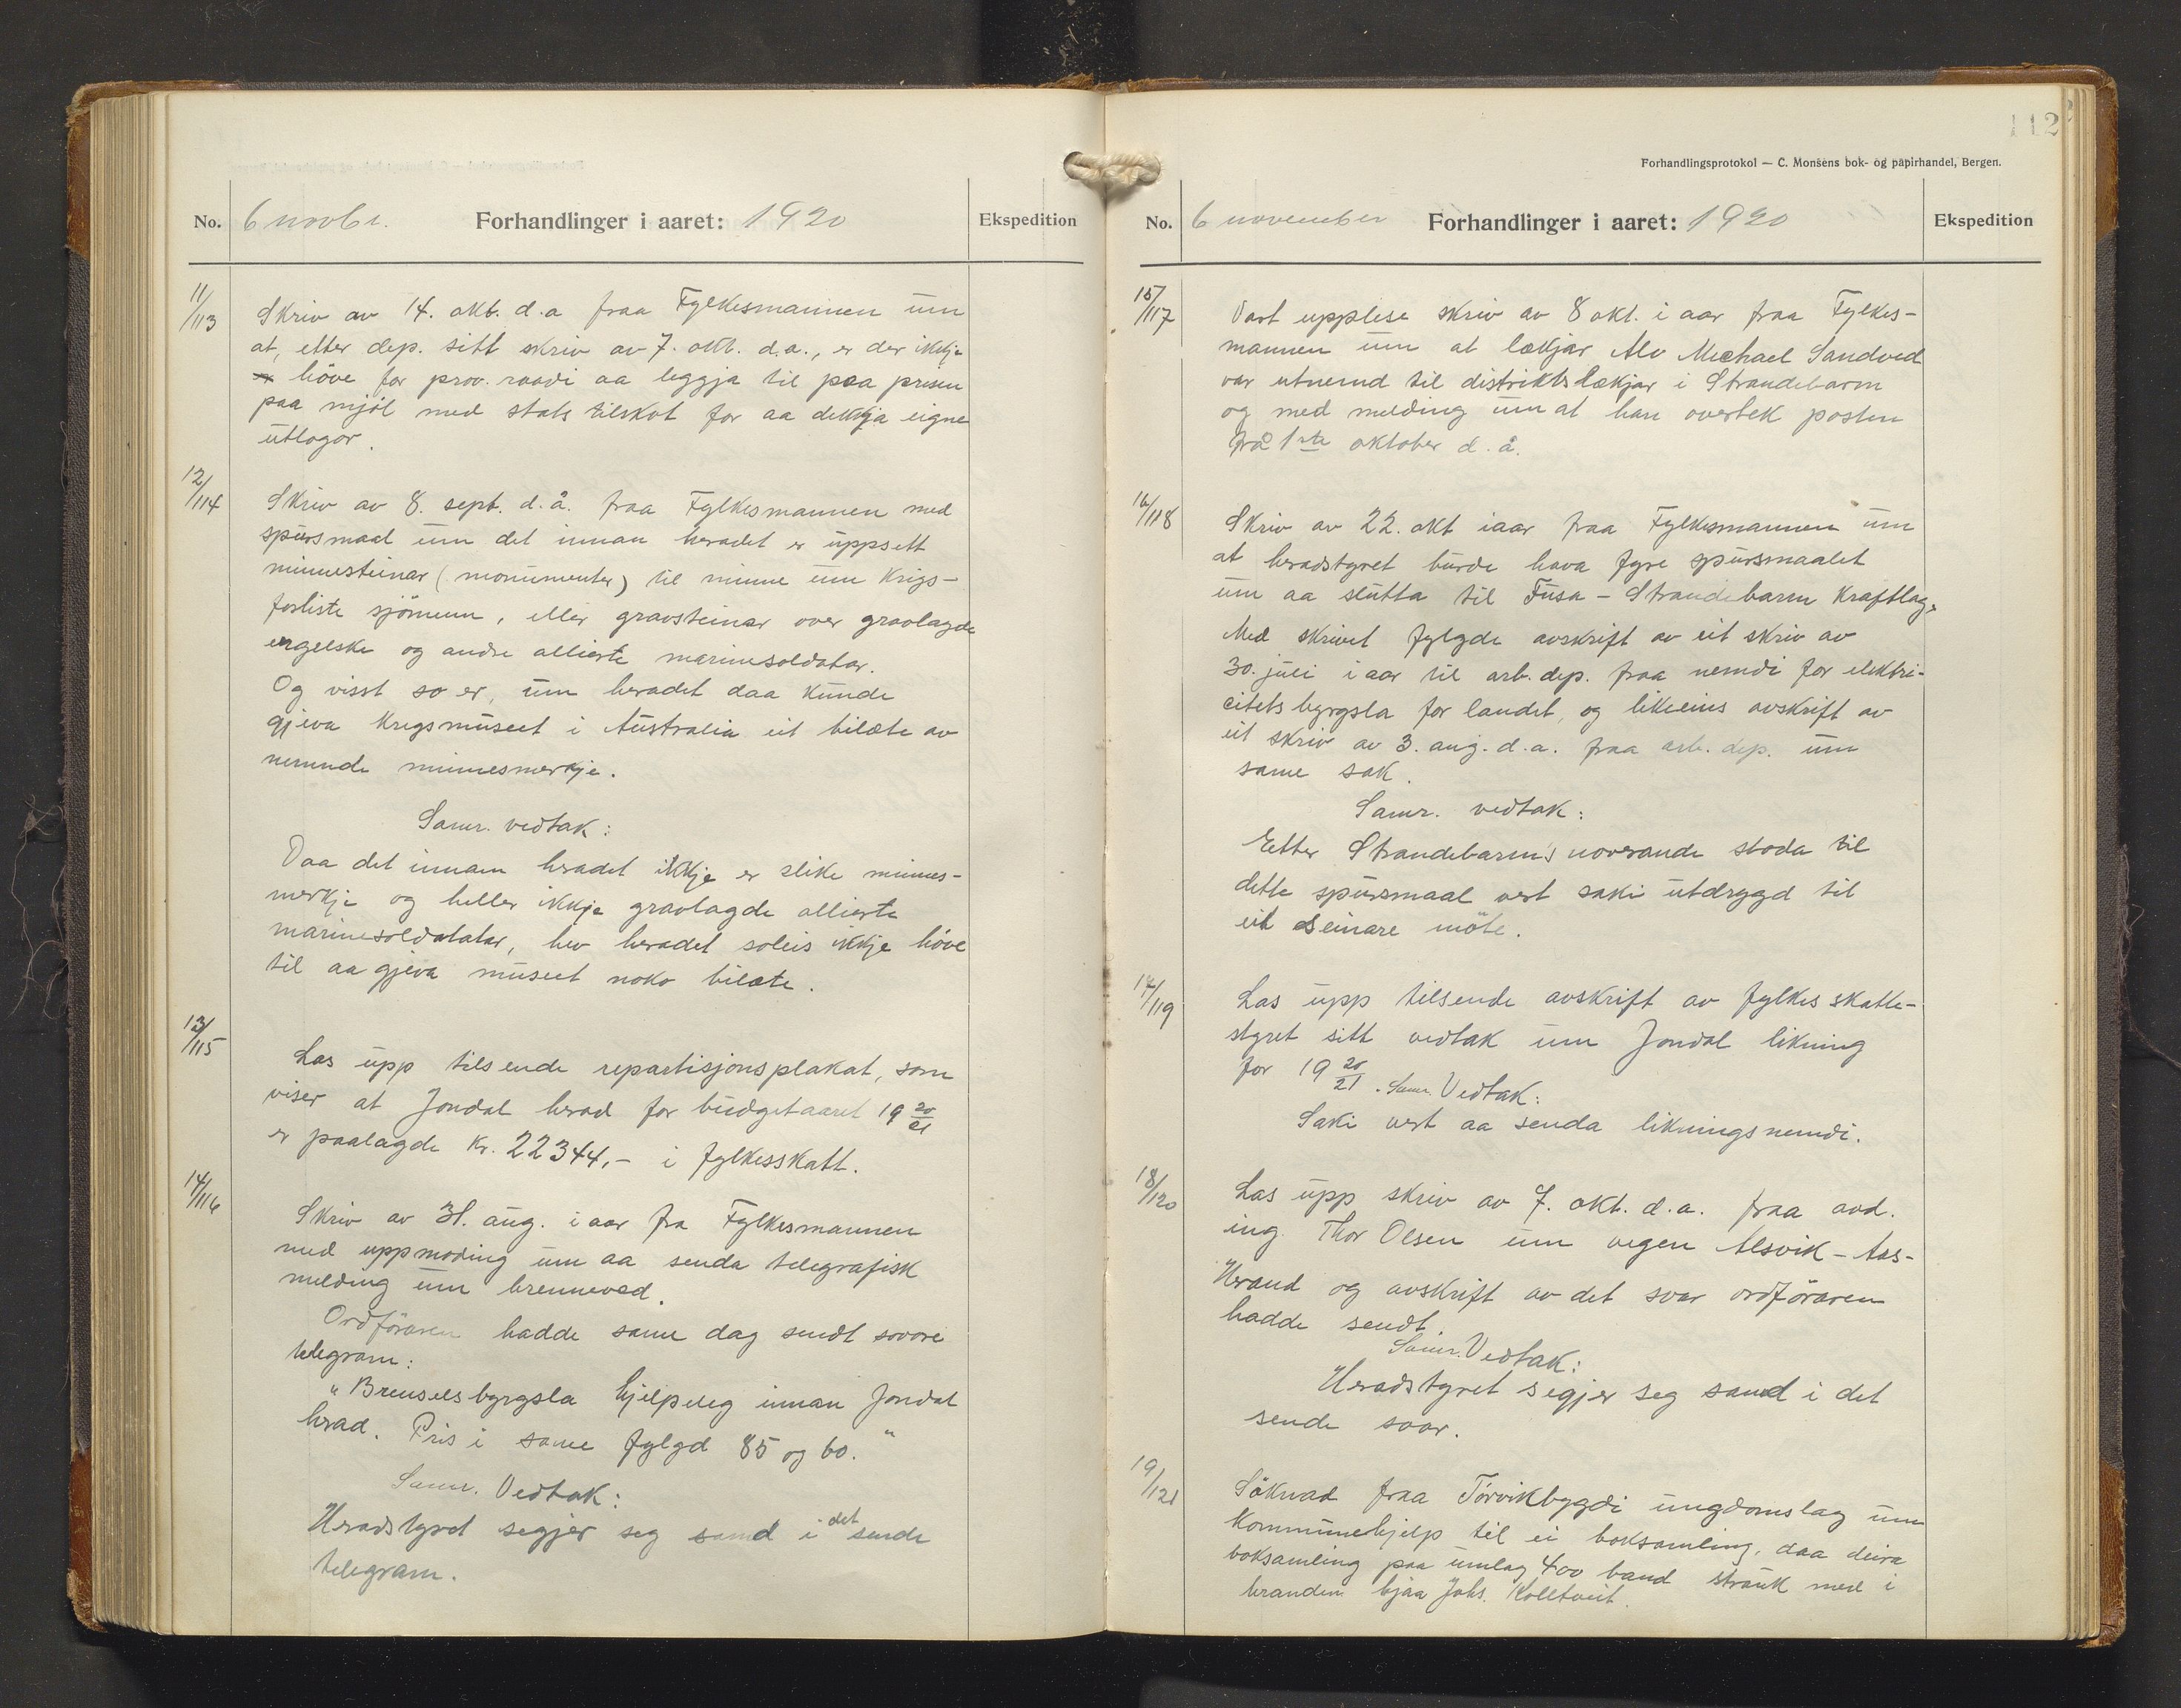 No. 6 novbr. Forhandlinger i aaret: 1920 Ekspedition
11/113
Skriv av 14. okt. d.a fraa Fylkesmannen um
at, etter dep. sitt skriv av 7. okt. d.a., er der ikkje
höve for prov. raadi aa leggja til paa prisen
paa mjöl med stats tilskot for aa dekkja eigne
utlogor.
12/114
Skriv av 8. sept. d.å. fraa Fylkesmannen med
spursmaal um det innan heradet er uppsett
minnesteinar (monumenter) til minne um Krigs-
forliste sjömenn, eller gravsteinar over gravlagde
engelske og andre allierte marinesoldatar.
Og visst so er, um heradet daa kunde
gjeva Krigsmuseet i Australia eit bilæte av
nemnde minnesmerkje.
Samr. vedtak:
Daa det innan heradet ikkje er slike minnes-
merkje og heller ikkje gravlagde allierte
marinesoldatatar, hev heradet soleis ikkje höve
til aa gjeva museet noko bilæte.
13/115
Las upp tilsende repartisjonsplakat, som
viser at Jondal herad for budgetaaret 19 20/21
er paalagde kr. 22344,- i fylkesskatt.
14/116
Skriv av 31. aug. i aar fra Fylkesmannen
med uppmoding um aa senda telegrafisk
melding um brenneved.
Ordföraren hadde same dag sendt sovore
telegram:
"Brenselsbyrgsla hjelpeleg innan Jondal
herad. Pris i same fylgd 85 og 60."
Samr. Vedtak:
Heradstyret segjer seg samd i det sende
telegram.
112
Forhandlingsprotokol — C. Monsens bok- og papirhandel, Bergen.
No. 6 november Forhandlinger i aaret: 1920 Ekspedition
15/117
Vart upplese skriv av 8 okt. i aar fraa Fylkes-
mannen um at lækjar Alv Michael Sandved
var utnemnd til distriktslækjar i Strandebarm
og med melding um at han overtek posten
frå 1ste oktober d.å.
16/118
Skriv av 22. okt iaar fraa Fylkesmannen um
at heradstyret burde hava fyre spursmaalet
um aa slutta til Fusa - Strandebarm Kraftlag.
Med skrivet fylgde avskrift av eit skriv av
30. juli i aar til arb. dep. fraa nemdi for elektri-
citetsbyrgsla for landet, og likeeins avskrift av
eit skriv av 3. aug. d.a. fraa arb. dep. um
same sak.
Samr. vedtak:
Etter Strandebarms noverande stoda til
dette spursmaal vert saki utdrygd til
eit seinare möte.
17/119
Las upp tilsende avskrift av fylkesskatte-
styret sitt vedtak um Jondal likning
for 19 20/21. Samr. Vedtak:
Saki vert aa senda likningsnemdi.
18/120
Las upp skriv av 7. okt. d.a. fraa avd.
ing. Thor Olsen um vegen Alsvik - Aas-
Herand og avskrift av det svar ordföraren
hadde sendt.
Samr. Vedtak:
Heradstyret segjer seg samd i det
sende svar.
19/121
Söknad fraa Törvikbygdi ungdomslag um
kommunehjelp til ei boksamling, daa deira
boksamling paa umlag 400 band strauk med i
branden hjaa Johs. Kolltveit.